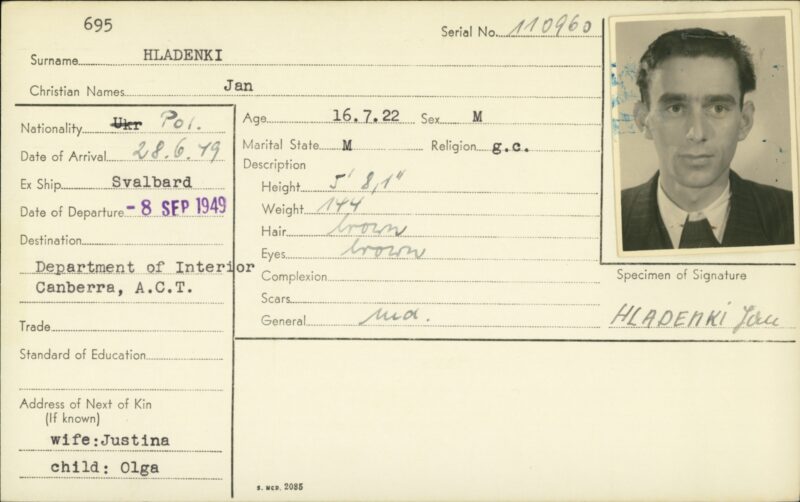 695
Serial No. 110960
Surname HLADENKI
Christian Names Jan
Nationality Ukr Pol.
Date of Arrival 28.6.49
Ex Ship Svalbard
Date of Departure - 8 SEP 1949
Destination
Department of Interior
Canberra, A.C.T.
Trade
Standard of Education
Address of Next of Kin
(If known)
wife:Justina
child: Olga
Age 16.7.22 Sex M
Marital State M Religion g.c.
Description
Height 5' 8,1"
Weight 144
Hair brown
Eyes brown
Complexion
Scars
General md.
S. MCD. 2085
Specimen of Signature
HLADENKI Jan